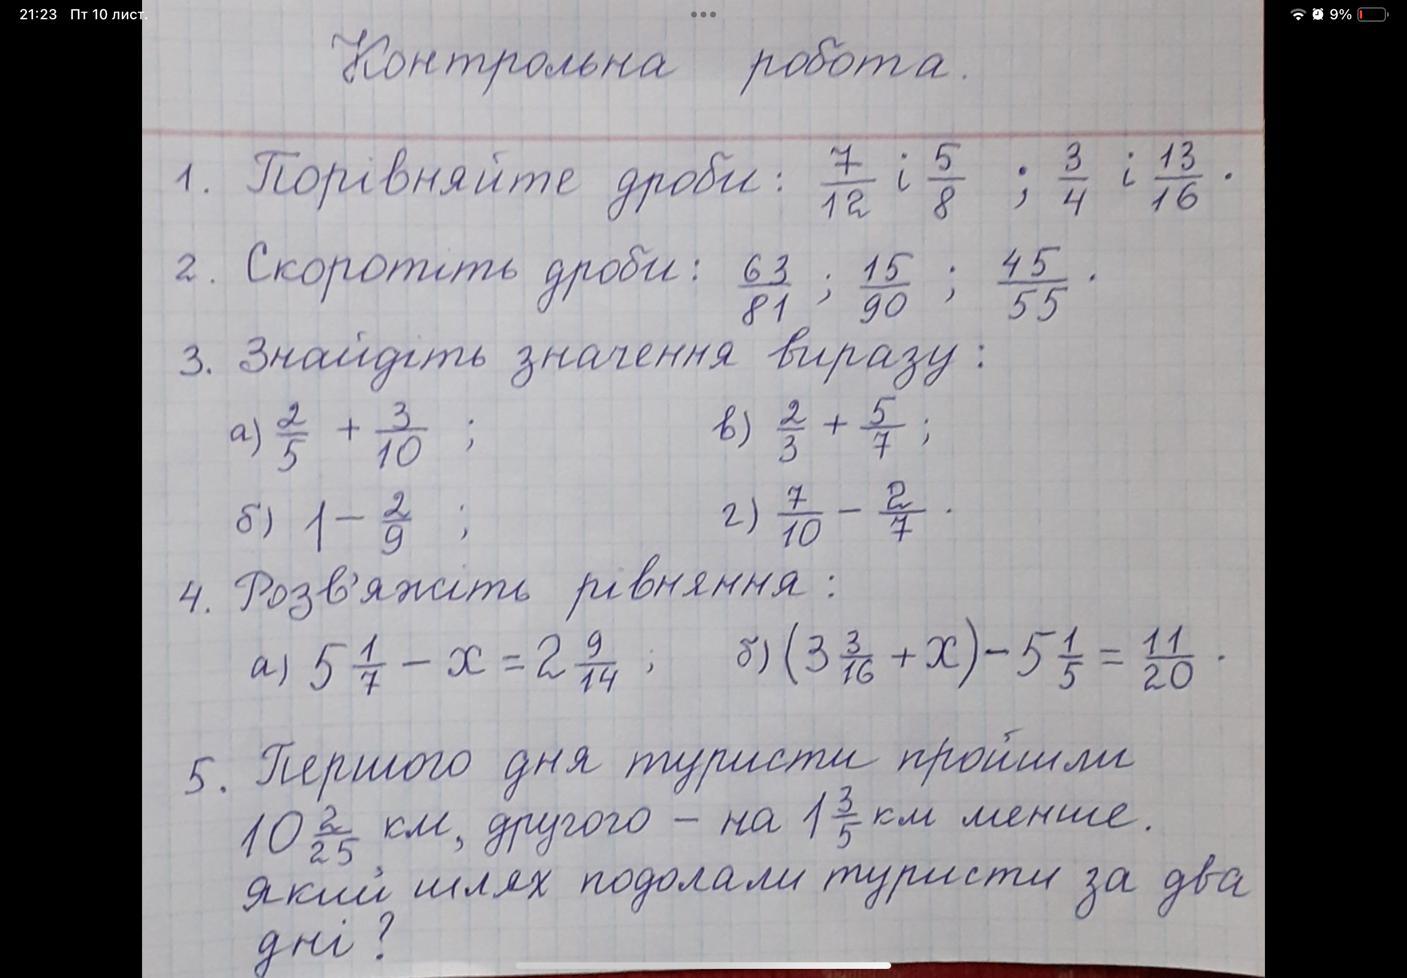 21:23 Пт 10 лист. ••• 9%
Контрольна робота.
1. Порівняйте дроби: 7/12 і 5/8 ; 3/4 і 13/16 .
2. Скоротіть дроби: 63/81 ; 15/90 ; 45/55 .
3. Знайдіть значення виразу :
а) 2/5 + 3/10 ; в) 2/3 + 5/7 ;
б) 1 - 2/9 ; г) 7/10 - 2/7 .
4. Розв'яжіть рівняння :
а) 5 1/7 - x = 2 9/14 ; б) (3 3/16 + x) - 5 1/5 = 11/20 .
5. Першого дня туристи пройшли
10 2/25 км, другого - на 1 3/5 км менше.
Який шлях подолали туристи за два
дні ?